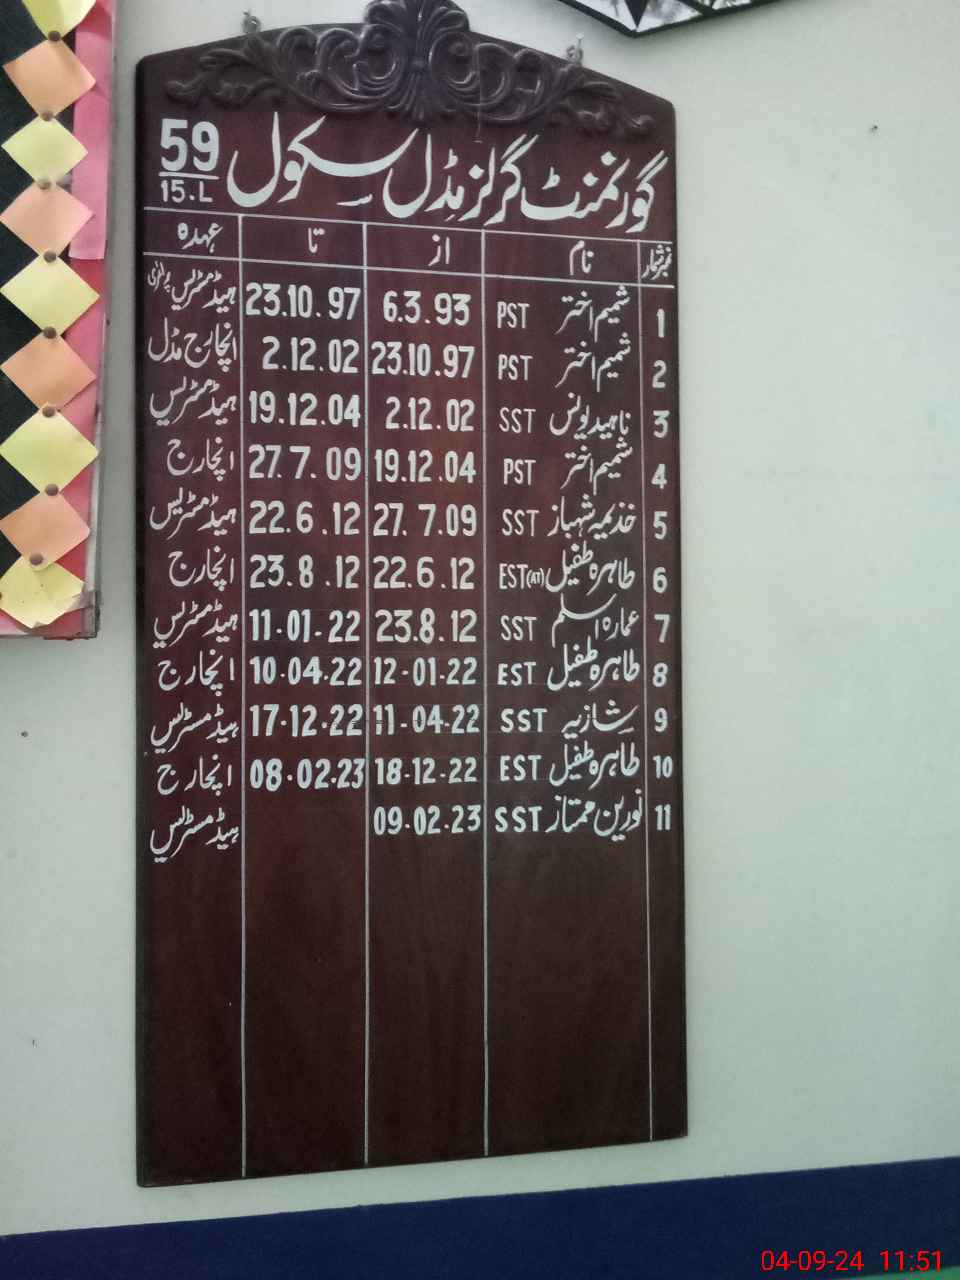 گورنمنٹ گرلز مڈل سکول 59/15.L
نمبر شمار نام از تا عہدہ
1 شمیم اختر PST 6.3.93 23.10.97 ہیڈمسٹریس پرائمری
2 شمیم اختر PST 23.10.97 2.12.02 انچارج مڈل
3 ناہید یونس SST 2.12.02 19.12.04 ہیڈمسٹریس
4 شمیم اختر PST 19.12.04 27.7.09 انچارج
5 خذیمہ شہباز SST 27.7.09 22.6.12 ہیڈمسٹریس
6 طاہرہ طفیل EST(AT) 22.6.12 23.8.12 انچارج
7 عمارہ اسلم SST 23.8.12 11-01-22 ہیڈمسٹریس
8 طاہرہ طفیل EST 12-01-22 10-04-22 انچارج
9 شازیہ SST 11-04-22 17-12-22 ہیڈمسٹریس
10 طاہرہ طفیل EST 18-12-22 08-02-23 انچارج
11 نورین ممتاز SST 09-02-23 ہیڈمسٹریس
04-09-24 11:51